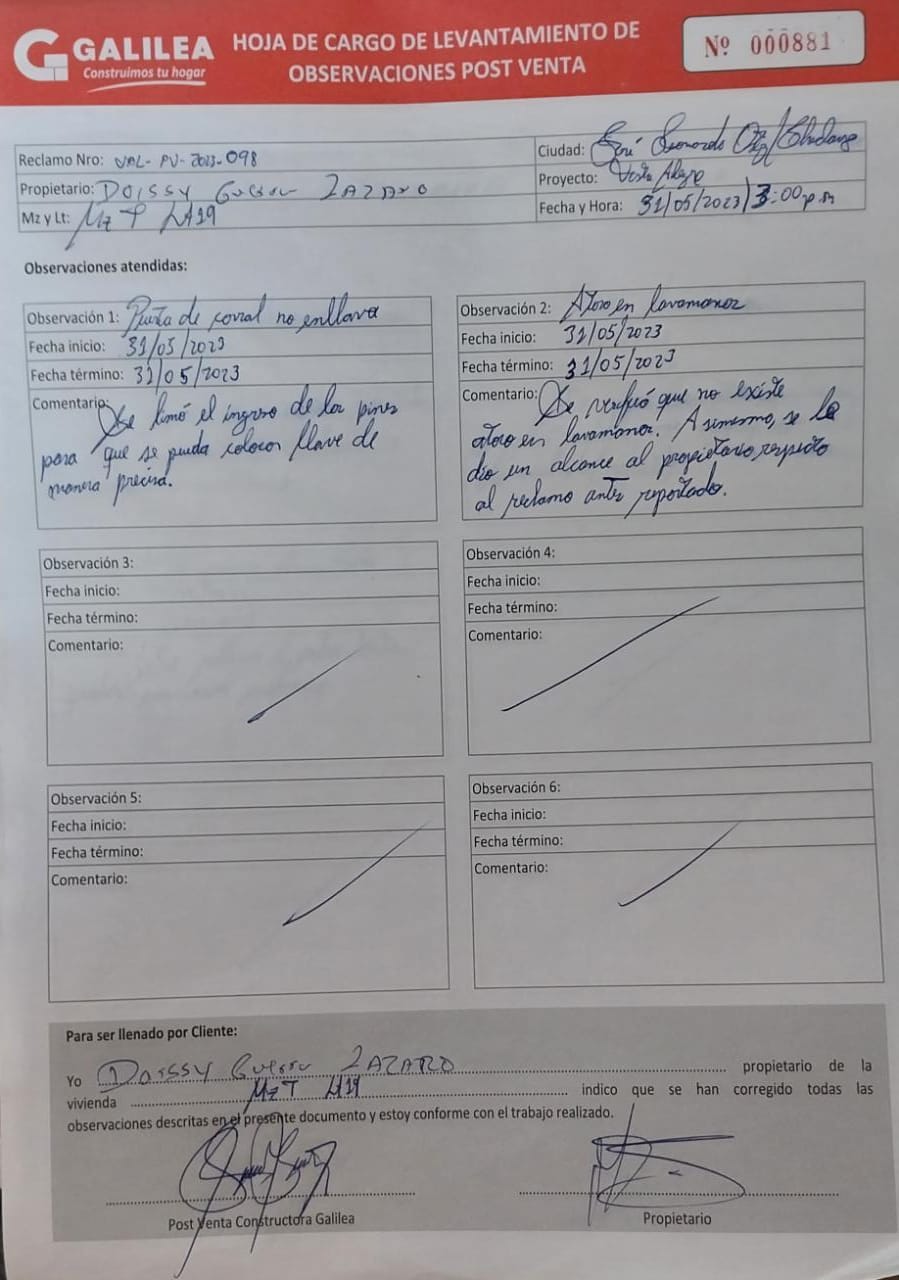 GALILEA
Construimos tu hogar
HOJA DE CARGO DE LEVANTAMIENTO DE
OBSERVACIONES POST VENTA
Nº 000881
Reclamo Nro: VAL-PV-2023-098
Ciudad: José Leonardo Ortiz/Chiclayo
Propietario: DOISSY Guerra LAZARO
Proyecto: Vista Alegre
Mz y Lt: Mz T Lt 19
Fecha y Hora: 31/05/2023/3:00 p.m
Observaciones atendidas:
Observación 1: Puerta de corral no enllava
Fecha inicio: 31/05/2023
Fecha término: 31/05/2023
Comentario: Se limó el ingreso de los pines
para que se pueda colocar llave de
manera precisa.
Observación 2: Atoro en lavamanos
Fecha inicio: 31/05/2023
Fecha término: 31/05/2023
Comentario: Se verificó que no existe
atoro en lavamanos. Asimismo, se le
dio un alcance al propietario, respecto
al reclamo antes reportado.
Observación 3:
Fecha inicio:
Fecha término:
Comentario:
Observación 4:
Fecha inicio:
Fecha término:
Comentario:
Observación 5:
Fecha inicio:
Fecha término:
Comentario:
Observación 6:
Fecha inicio:
Fecha término:
Comentario:
Para ser llenado por Cliente:
Yo DOISSY Guerra LAZARO propietario de la
vivienda Mz T Lt 19 indico que se han corregido todas las
observaciones descritas en el presente documento y estoy conforme con el trabajo realizado.
Post Venta Constructora Galilea
Propietario